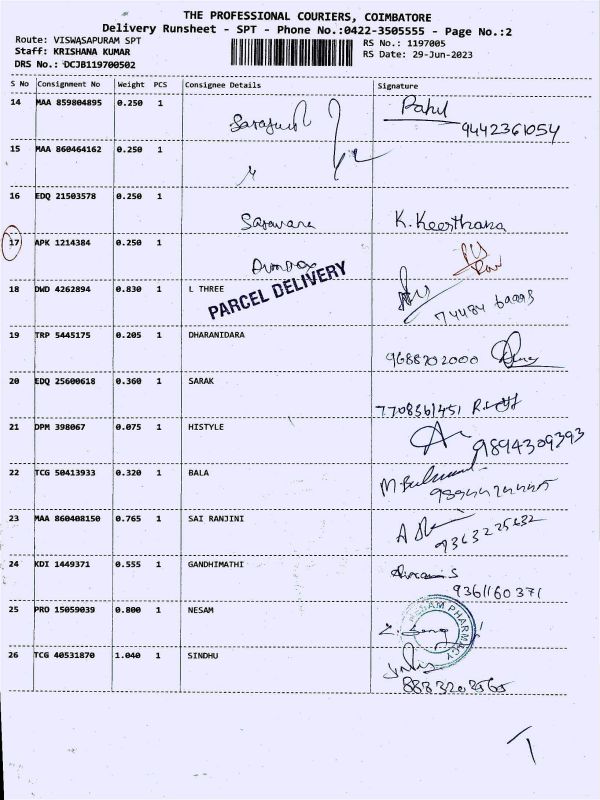 THE PROFESSIONAL COURIERS, COIMBATORE
Delivery Runsheet - SPT - Phone No.:0422-3505555 - Page No.:2
Route: VISWASAPURAM SPT
RS No.: 1197005
Staff: KRISHANA KUMAR
RS Date: 29-Jun-2023
DRS No.: DCJB119700502
S No Consignment No Weight PCS Consignee Details Signature
14 MAA 859804895 0.250 1
9442361054
15 MAA 860464162 0.250 1
16 EDQ 21503578 0.250 1
Saravana K. Keerthana
17 APK 1214384 0.250 1
18 DWD 4262894 0.830 1 L THREE
PARCEL DELIVERY
19 TRP 5445175 0.205 1 DHARANIDARA
9688702000
20 EDQ 25600618 0.360 1 SARAK
7708561451
21 DPM 398067 0.075 1 HISTYLE
9894309393
22 TCG 50413933 0.320 1 BALA
23 MAA 860408150 0.765 1 SAI RANJINI
9363225632
24 KDI 1449371 0.555 1 GANDHIMATHI
9361160371
25 PRO 15059039 0.800 1 NESAM
NESAM PHARMACY
26 TCG 40531870 1.040 1 SINDHU